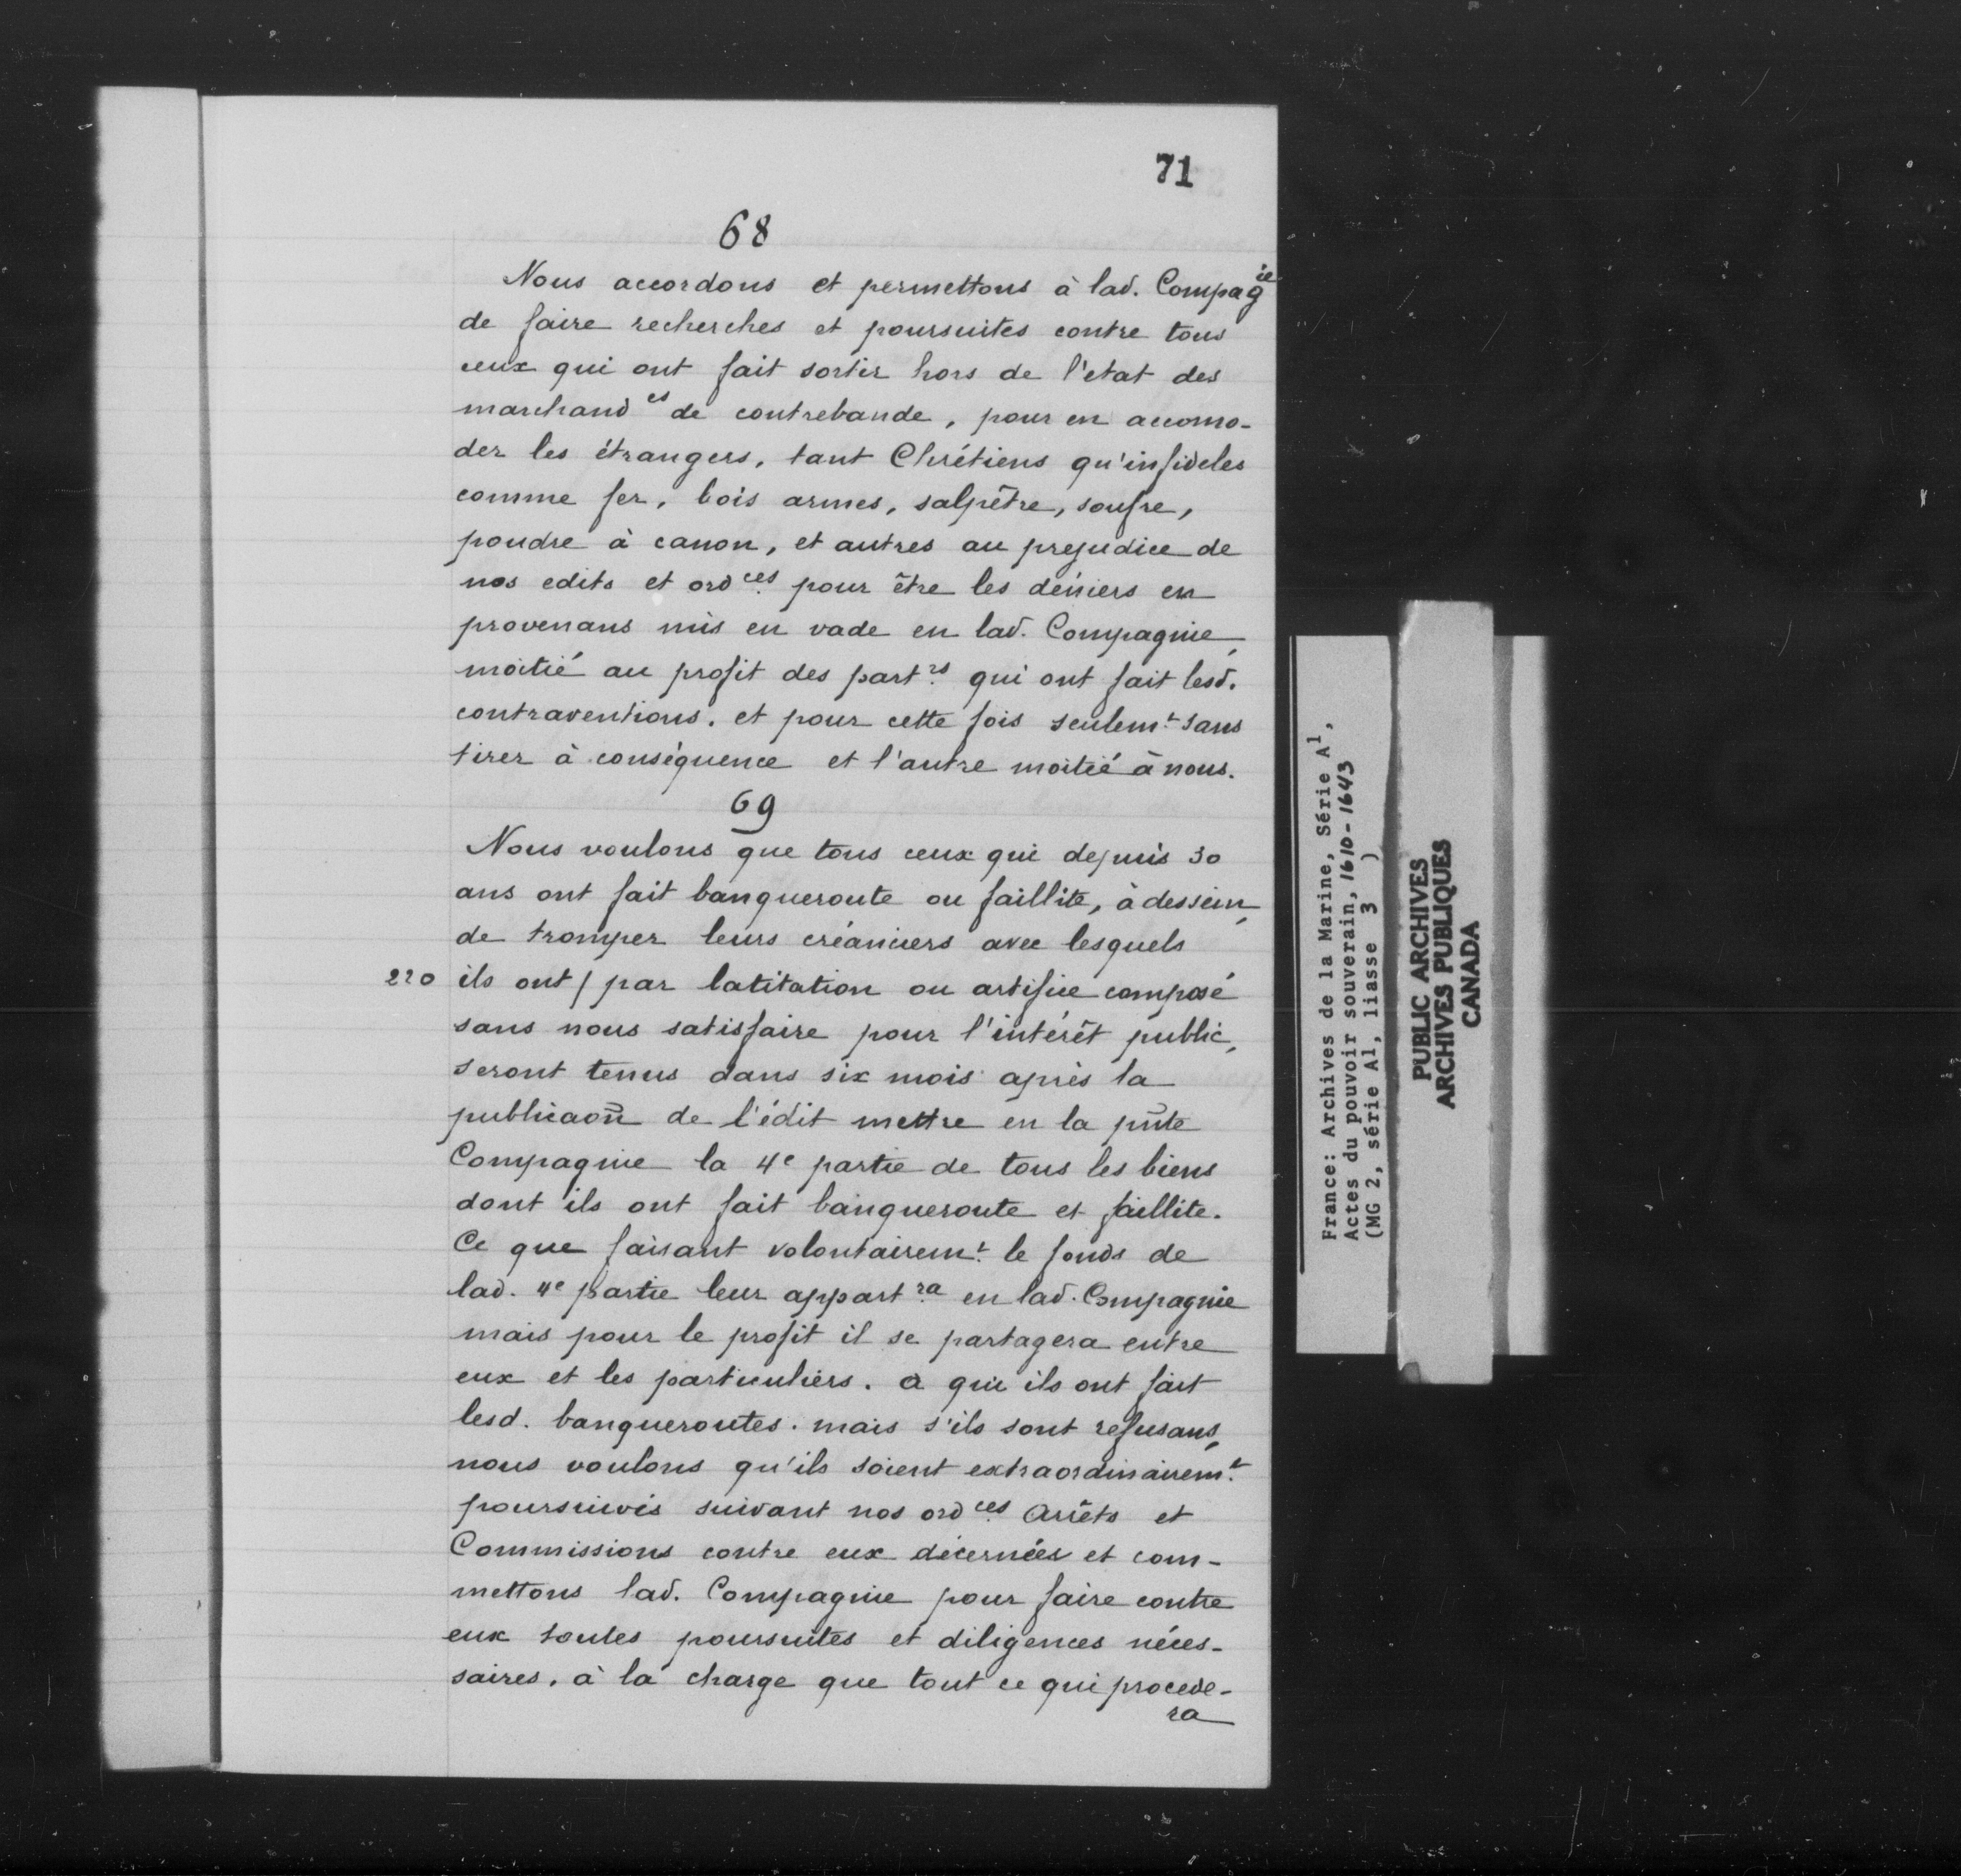 71
68
Nous accordons et permettons à lad. Compag^ie
de faire recherches et poursuites contre tous
ceux qui ont fait sortir hors de l'etat des
marchand^es de contrebande, pour en accomo-
der les étrangers, tant Chrétiens qu'infideles
comme fer, bois armes, salpêtre, soufre,
poudre à canon, et autres au prejudice de
nos edits et ord^ces pour être les déniers en
provenans mis en vade en lad. Compagnie,
moitié au profit des part^rs qui ont fait lesd.
contraventions. et pour cette fois seulem^t sans
tirer à conséquence et l'autre moitié à nous.
69
Nous voulons que tous ceux qui depuis 30
ans ont fait banqueroute ou faillite, à dessein,
de tromper leurs créanciers avec lesquels
220 ils ont / par latitation ou artifice composé
sans nous satisfaire pour l'intérêt public,
seront tenus dans six mois après la
publicaoñ de l'édit mettre en la pñte
Compagnie la 4e partie de tous les biens
dont ils ont fait banqueroute et faillite.
Ce que faisant volontairem^t le fonds de
lad. 4e partie leur appart^ra en lad. Compagnie
mais pour le profit il se partagera entre
eux et les particuliers. a qui ils ont fait
lesd. banqueroutes. mais s'ils sont refusans,
nous voulons qu'ils soient extraordinairem^t
poursuivis suivant nos ord^ces Arrêts et
Commissions contre eux décernées et com-
mettons lad. Compagnie pour faire contre
eux toutes poursuites et diligences néces-
saires. à la charge que tout ce qui procede-
ra
France: Archives de la Marine, Série A1,
Actes du pouvoir souverain, 1610-1643
(MG 2, série A1, liasse 3 )
PUBLIC ARCHIVES
ARCHIVES PUBLIQUES
CANADA